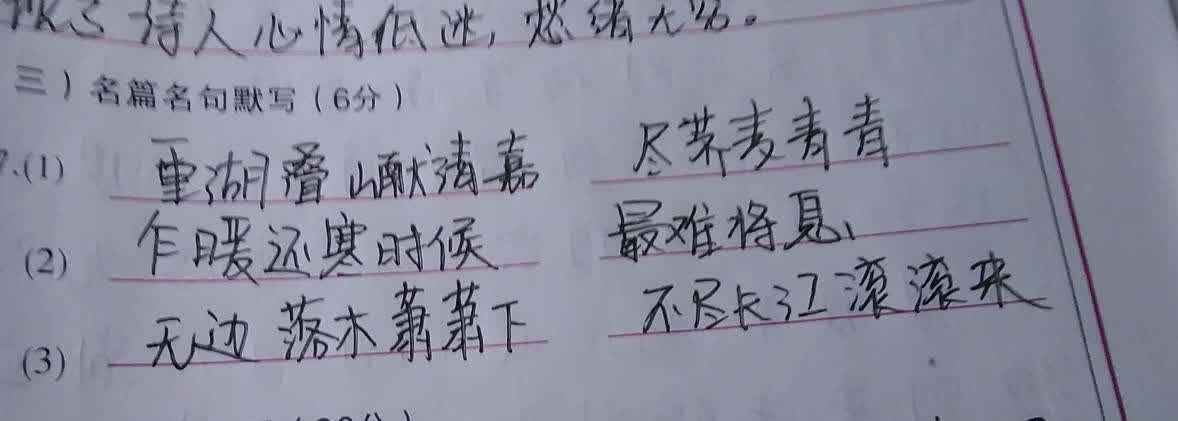 诗人心情低迷，愁绪无
三）名篇名句默写（6分）
7.(1) 重湖叠巘清嘉 尽荠麦青青
(2) 乍暖还寒时候 最难将息、
(3) 无边落木萧萧下 不尽长江滚滚来